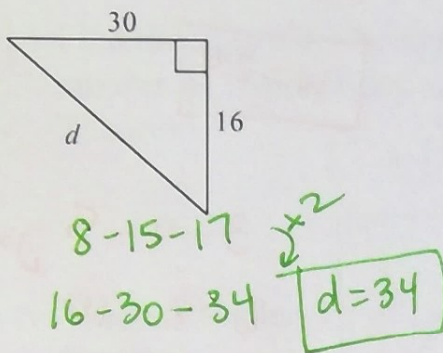 30
16
d
8-15-17
×2
16-30-34
d=34